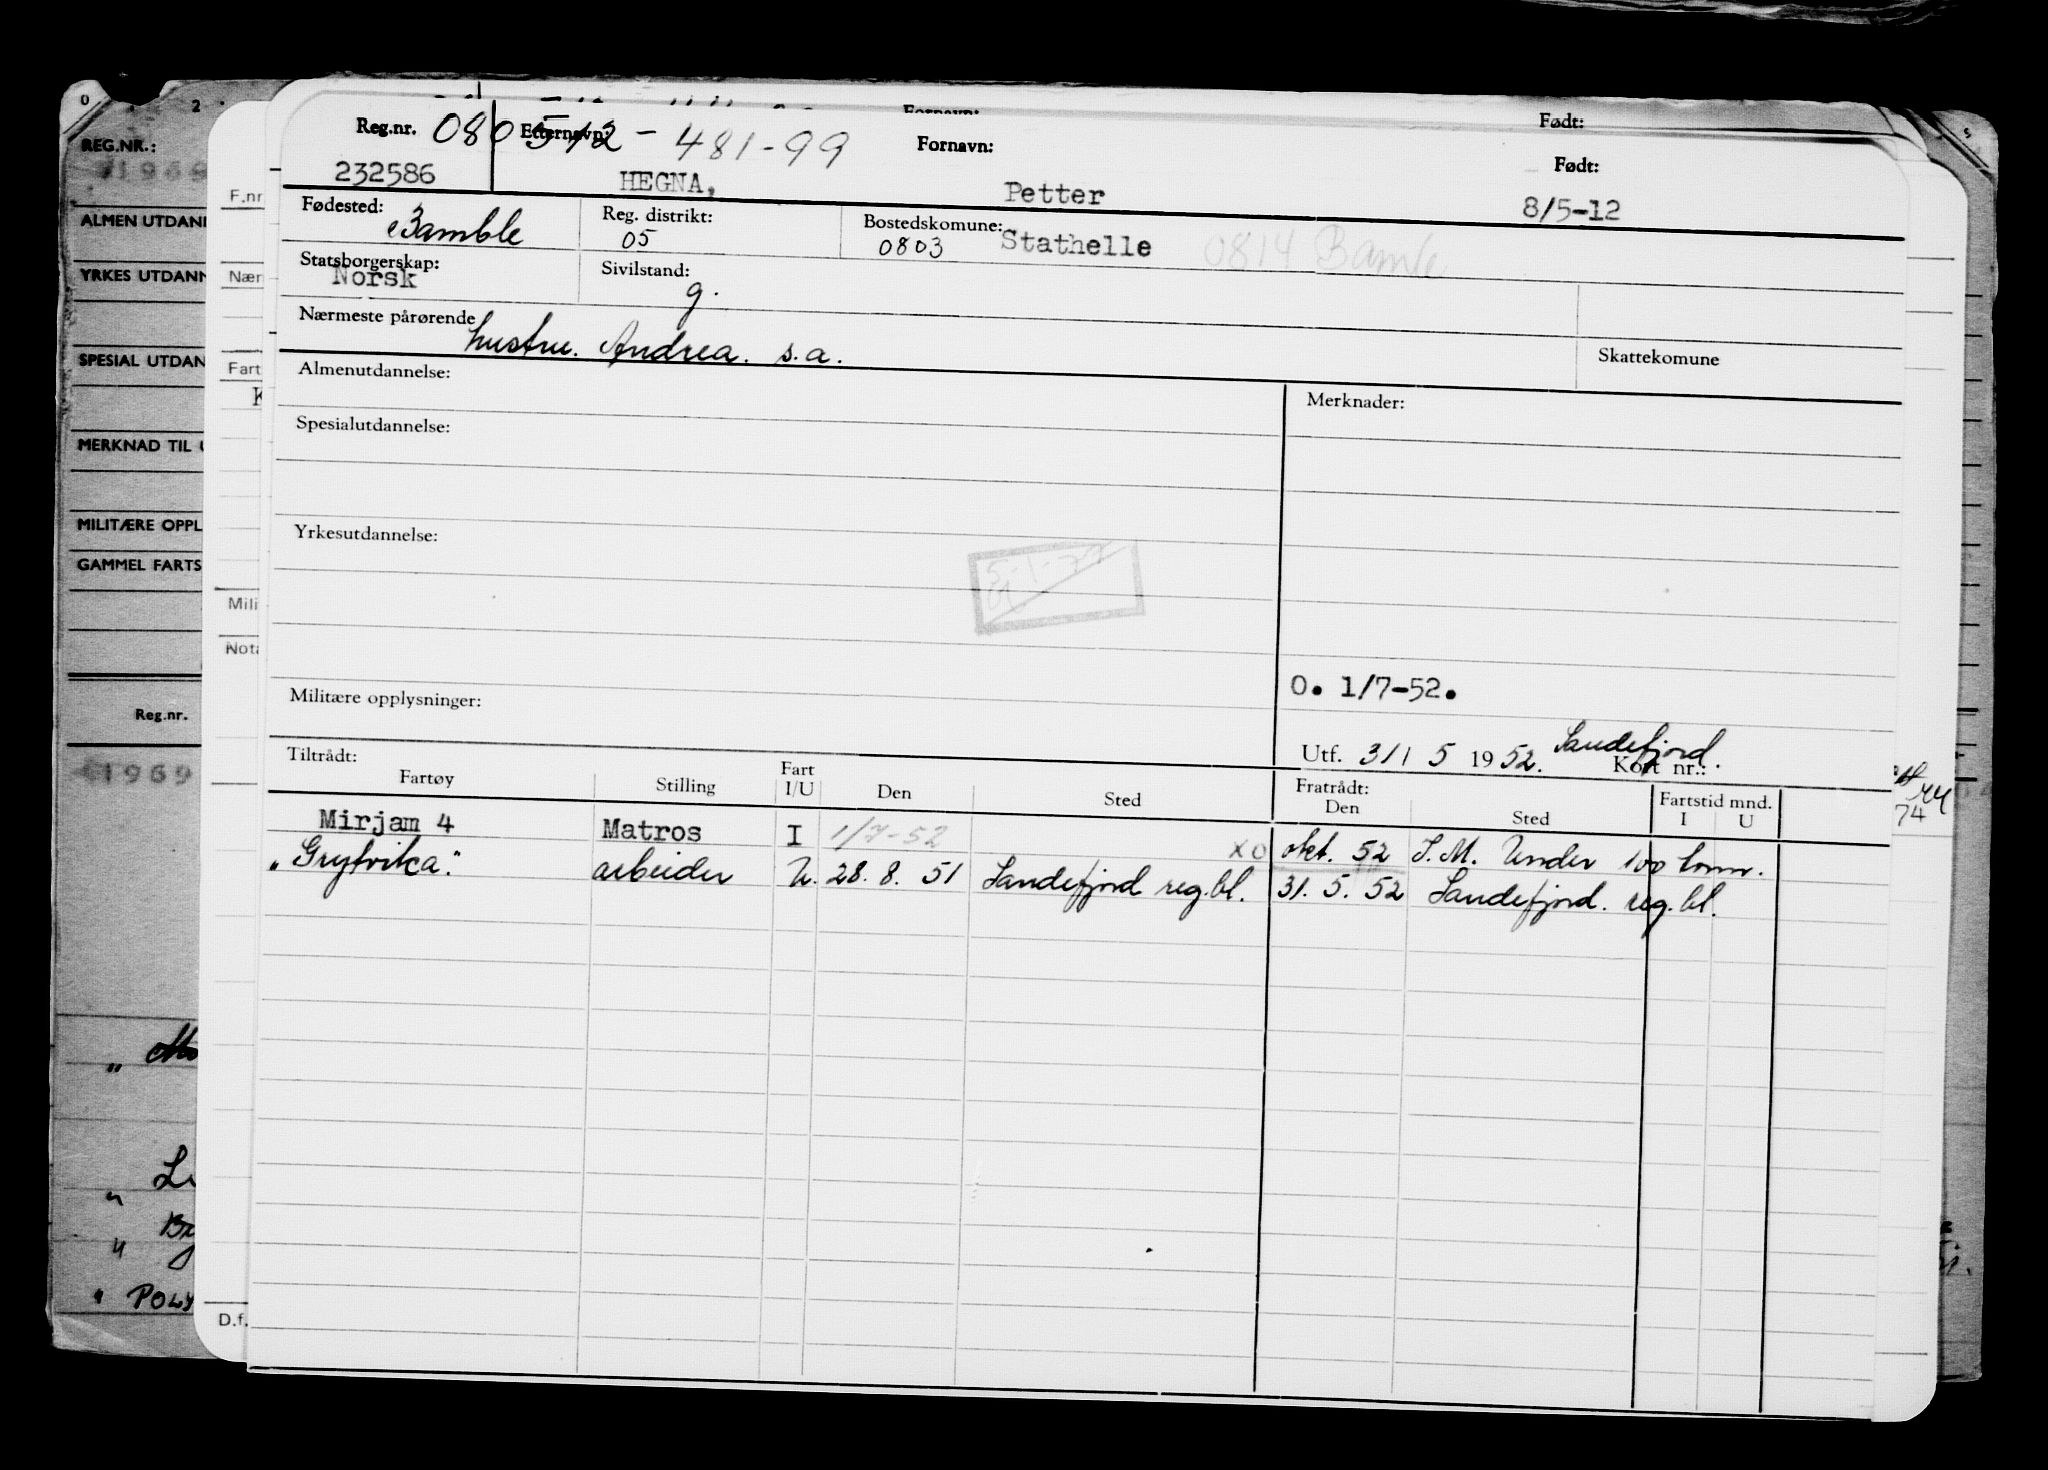 Fornavn: Født:
Reg.nr. 080512-481-99 Etternavn: Fornavn: Født:
232586 HEGNA, Petter 8/5-12
Fødested: Bamble Reg. distrikt: 05 Bostedskomune: 0803 Stathelle 0814 Bamble
Statsborgerskap: Norsk Sivilstand: g.
Nærmeste pårørende hustru. Andrea. s.a. Skattekomune
Almenutdannelse: Merknader:
Spesialutdannelse:
Yrkesutdannelse:
O. 1/7-52.
Militære opplysninger:
Utf. 31/5 1952. Sandefjord. Kort nr.:
Tiltrådt: Fratrådt:
Fartøy Stilling Fart I/U Den Sted Den Sted Fartstid mnd. I U
Mirjam 4 Matros I 1/7-52 xo okt. 52 S.M. Under 100 tonn.
"Grytvika". arbeider U. 28.8. 51 Sandefjord reg.bl. 31.5. 52 Sandefjord. reg.bl.
O 2
REG.NR.:
1969
ALMEN UTDANN
YRKES UTDANN
SPESIAL UTDAN
MERKNAD TIL U
MILITÆRE OPPL
GAMMEL FARTS
Reg.nr.
1969
" POLY
F.nr
Nær
Fart
K
Mili
Nota
D.f.
74
5